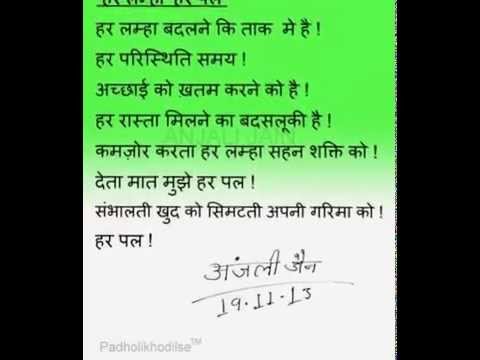 हर लम्हा हर पल
हर लम्हा बदलने कि ताक मे है !
हर परिस्थिति समय !
अच्छाई को ख़तम करने को है !
हर रास्ता मिलने का बदसलूकी है !
ANJALI JAIN
कमज़ोर करता हर लम्हा सहन शक्ति को !
देता मात मुझे हर पल !
संभालती खुद को सिमटती अपनी गरिमा को !
हर पल !
अंजली जैन
19.11.13
Padholikhodilse™